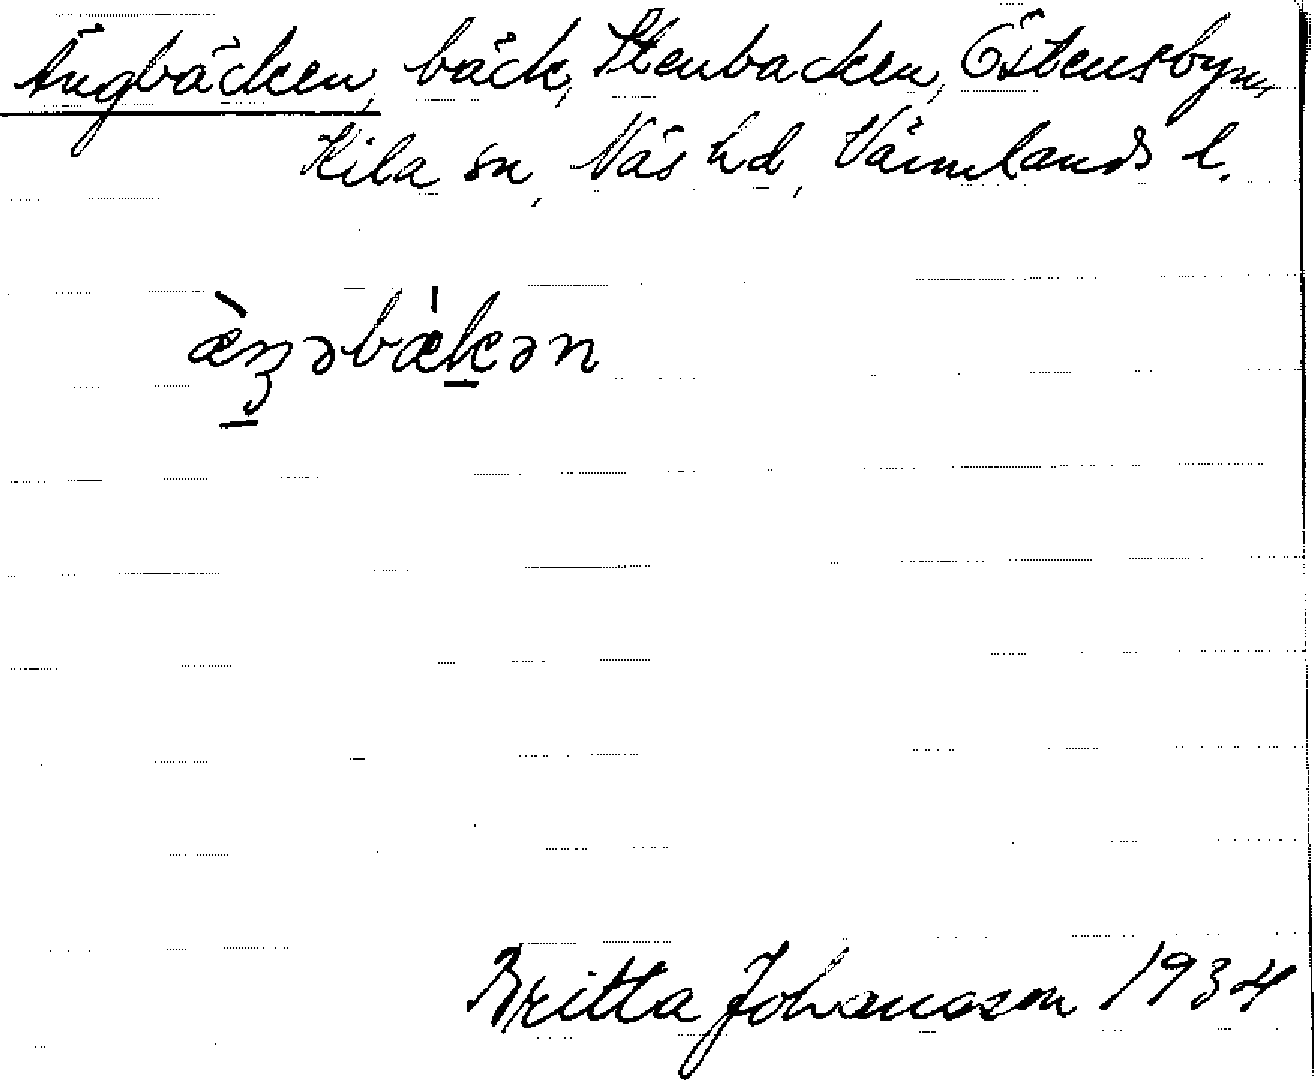 Ängbäcken, bäck, Stenbacken, Östensbyn,
Kila sn, Näs hd, Värmlands l.
æ̀ŋəbæ̀kən
Britta Johansson 1934